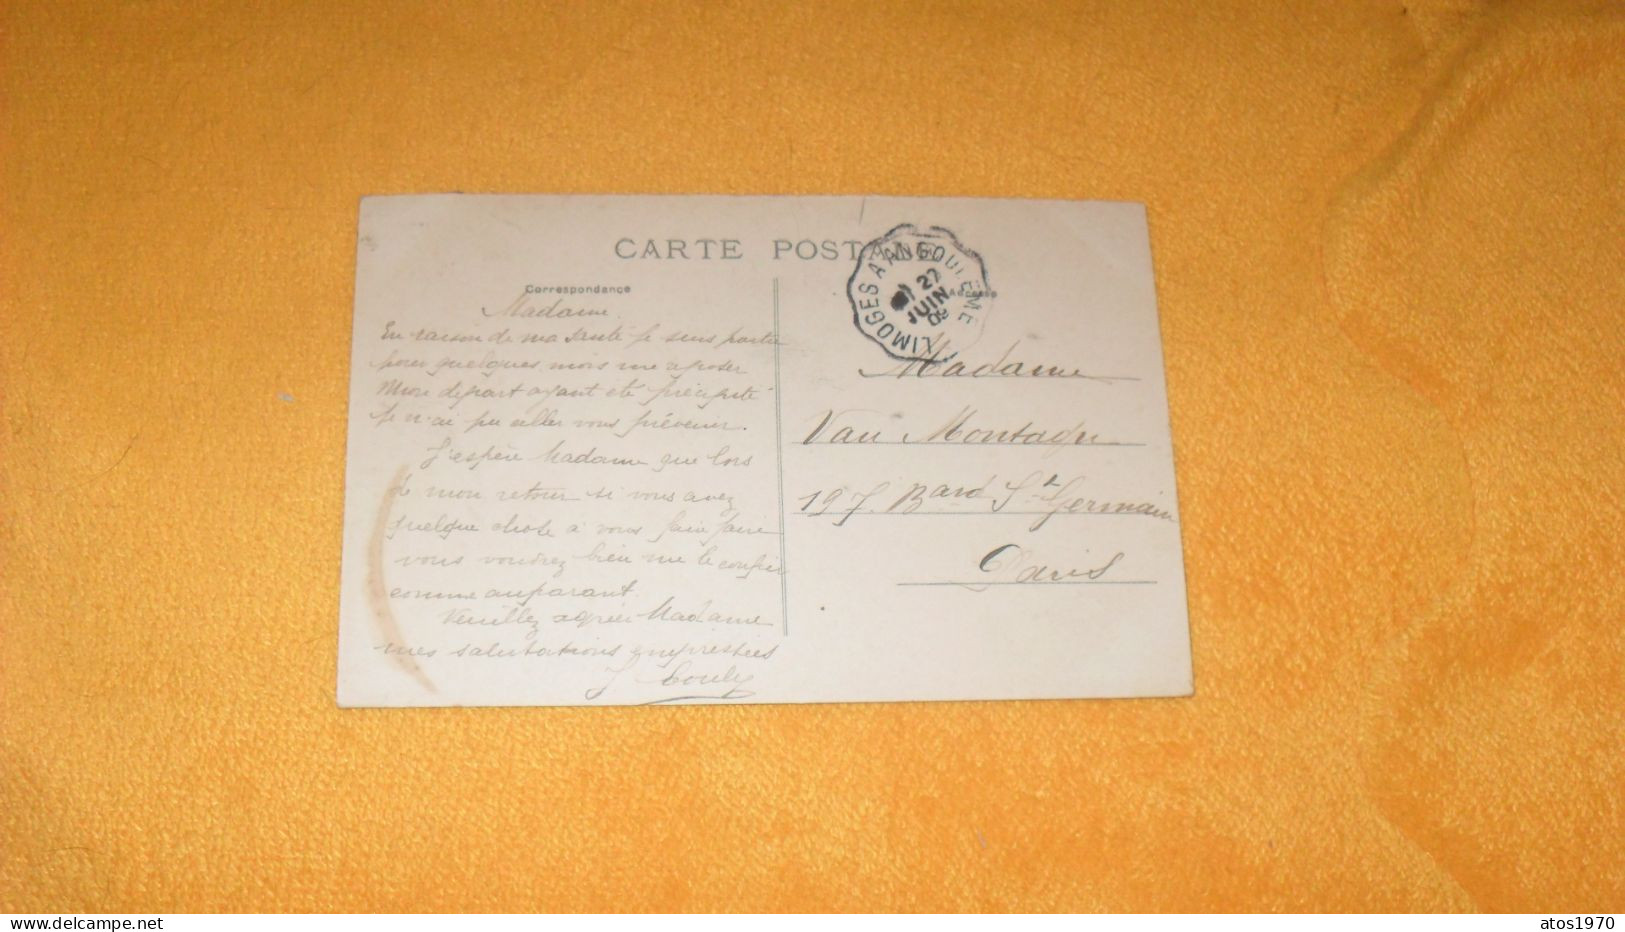 CARTE POSTALE
Correspondance
Madame.
En raison de ma santé je suis partie
pour quelques mois me reposer
Mon depart ayant été précipité
Je n'ai pu aller vous prévenir.
J'espère Madame que lors
de mon retour si vous avez
quelque chose à vous faire faire
vous voudrez bien me le confier
comme auparavant.
Veuillez agréer Madame
mes salutations empressées
LIMOGES A ANGOULEME
27
JUIN
09
Adresse
Madame
Van Montagu
197. Bard St Germain
Paris
atos1970